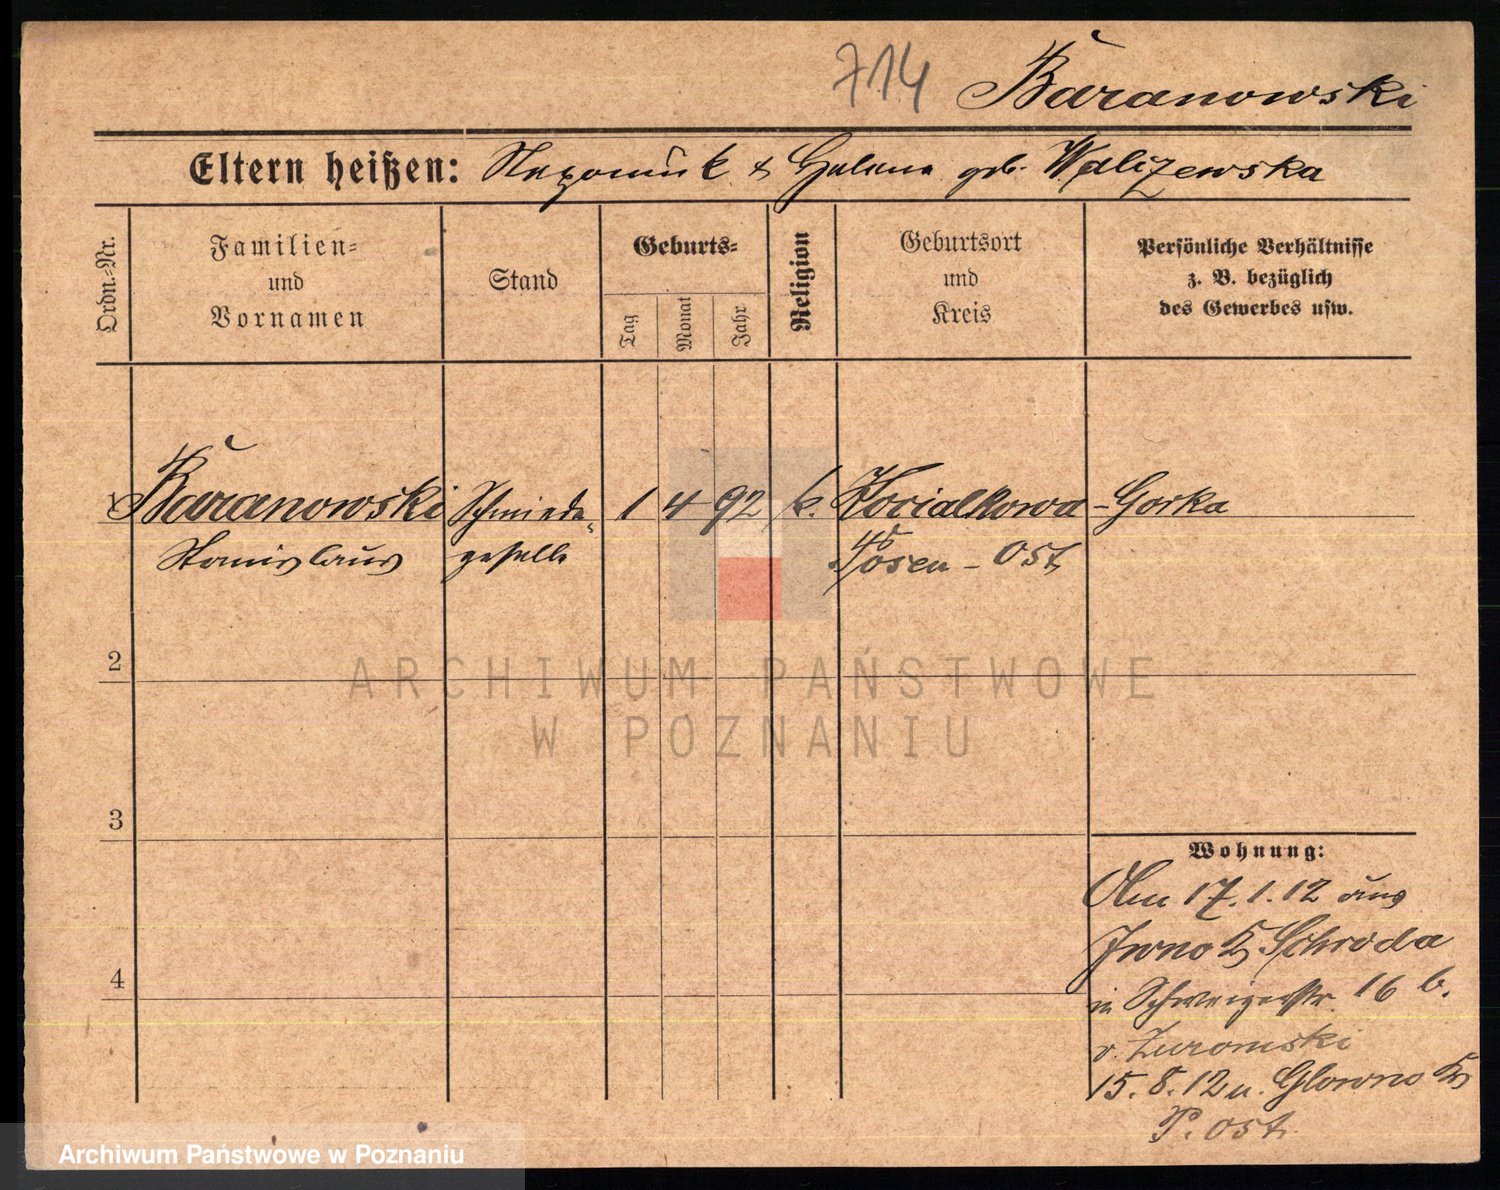 714 Baranowski
Eltern heißen: Nepomuk & Helene geb. Walizewska
Ordn.-Nr.
Familien-
und
Vornamen
Stand
Geburts-
Tag
Monat
Jahr
Religion
Geburtsort
und
Kreis
Persönliche Verhältnisse
z. B. bezüglich
des Gewerbes usw.
1 Baranowski Schmiede- 1 4 92 k. Kocialkowa-Gorka
Stanislaus geselle Kr Posen-Ost
2
ARCHIWUM PAŃSTWOWE
W POZNANIU
3
Wohnung:
Am 17.1.12 aus
Iwno K Schroda
4
in Schweizerstr. 16 b.
v. Zuromski
15.8.12 n. Glowno K
P. Ost
Archiwum Państwowe w Poznaniu